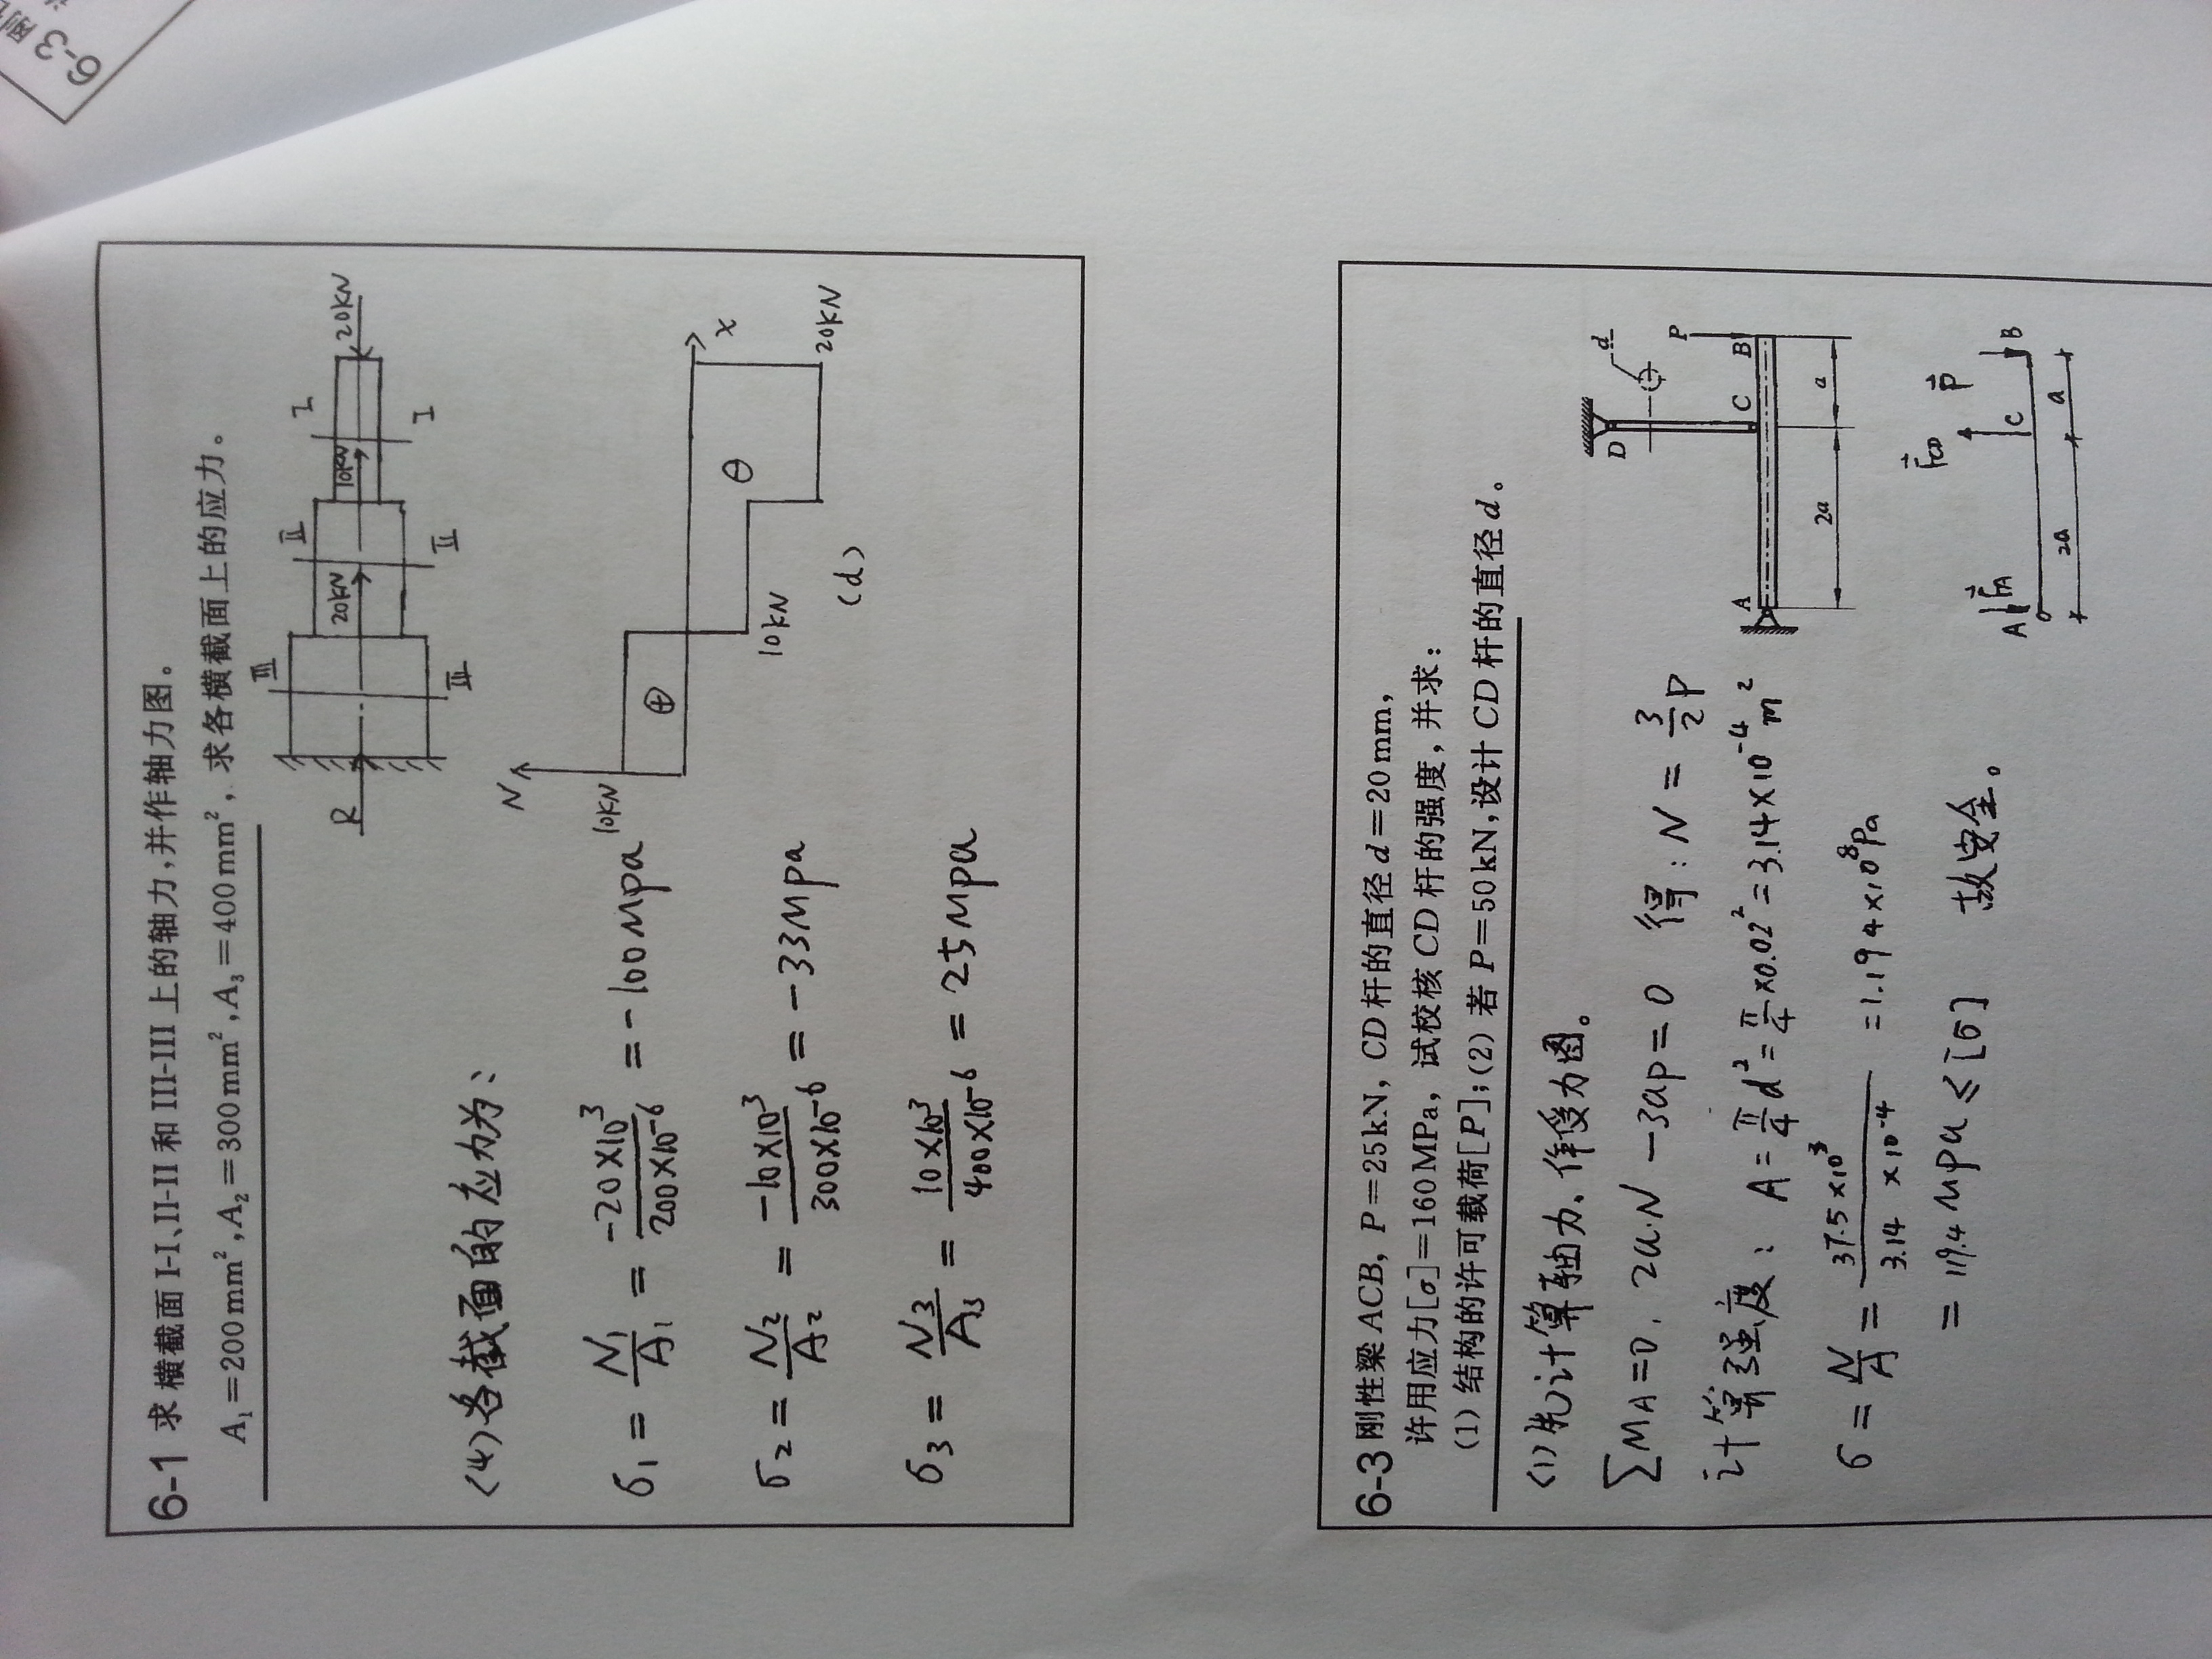 6-3 刚
6-1 求横截面 I-I、II-II 和 III-III 上的轴力,并作轴力图。
A₁=200mm²,A₂=300mm²,A₃=400mm²,求各横截面上的应力。
III II I
R 20kN 10kN 20kN
III II I
<4>各截面的应力为:
N
10KN
⊕
x
⊖
10kN
20kN
(d)
σ₁ = N₁/A₁ = -20×10³/200×10⁻⁶ = -100Mpa
σ₂ = N₂/A₂ = -10×10³/300×10⁻⁶ = -33Mpa
σ₃ = N₃/A₃ = 10×10³/400×10⁻⁶ = 25Mpa
6-3 刚性梁 ACB, P=25kN, CD 杆的直径 d=20mm,
许用应力[σ]=160MPa, 试校核 CD 杆的强度,并求:
(1) 结构的许可载荷[P];(2) 若 P=50kN,设计 CD 杆的直径 d。
<1>先计算轴力、作受力图。
D d
A C B P
2a a
ΣMA=0. 2a·N -3aP=0 得: N = 3/2 P
计算强度: A = π/4 d² = π/4 ×0.02² = 3.14×10⁻⁴ m²
σ = N/A = 37.5×10³/3.14×10⁻⁴ = 1.194×10⁸Pa
= 119.4 Mpa ≤ [σ] 故安全。
A FA FCD C P B
2a a